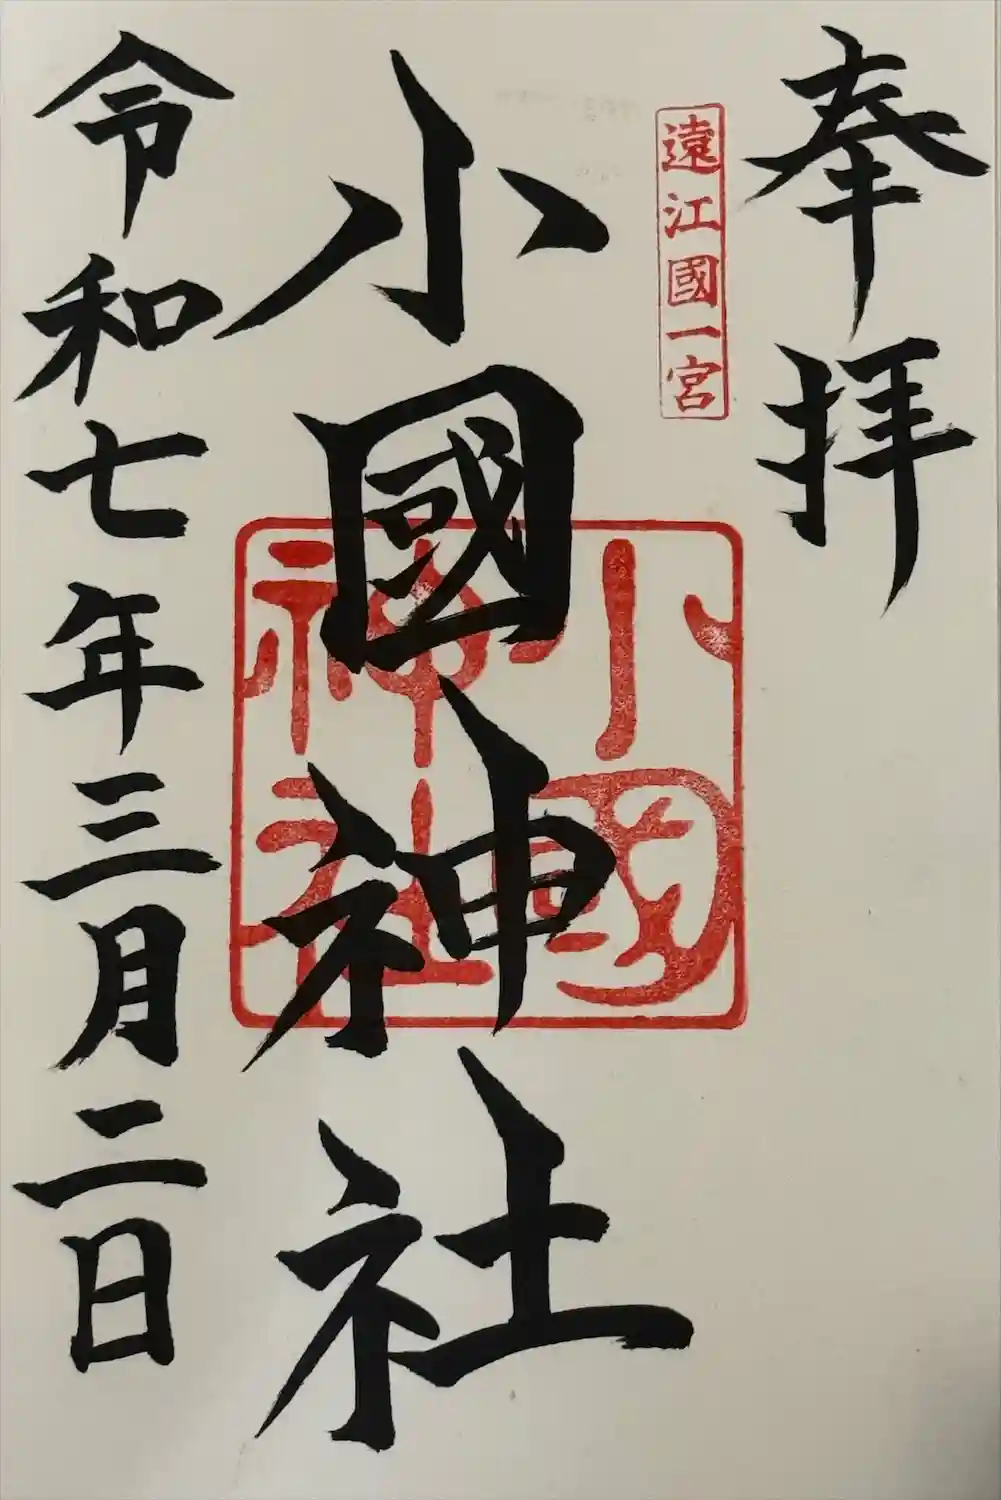 奉拝
遠江國一宮
小國神社
小國
神社
令和七年三月二日